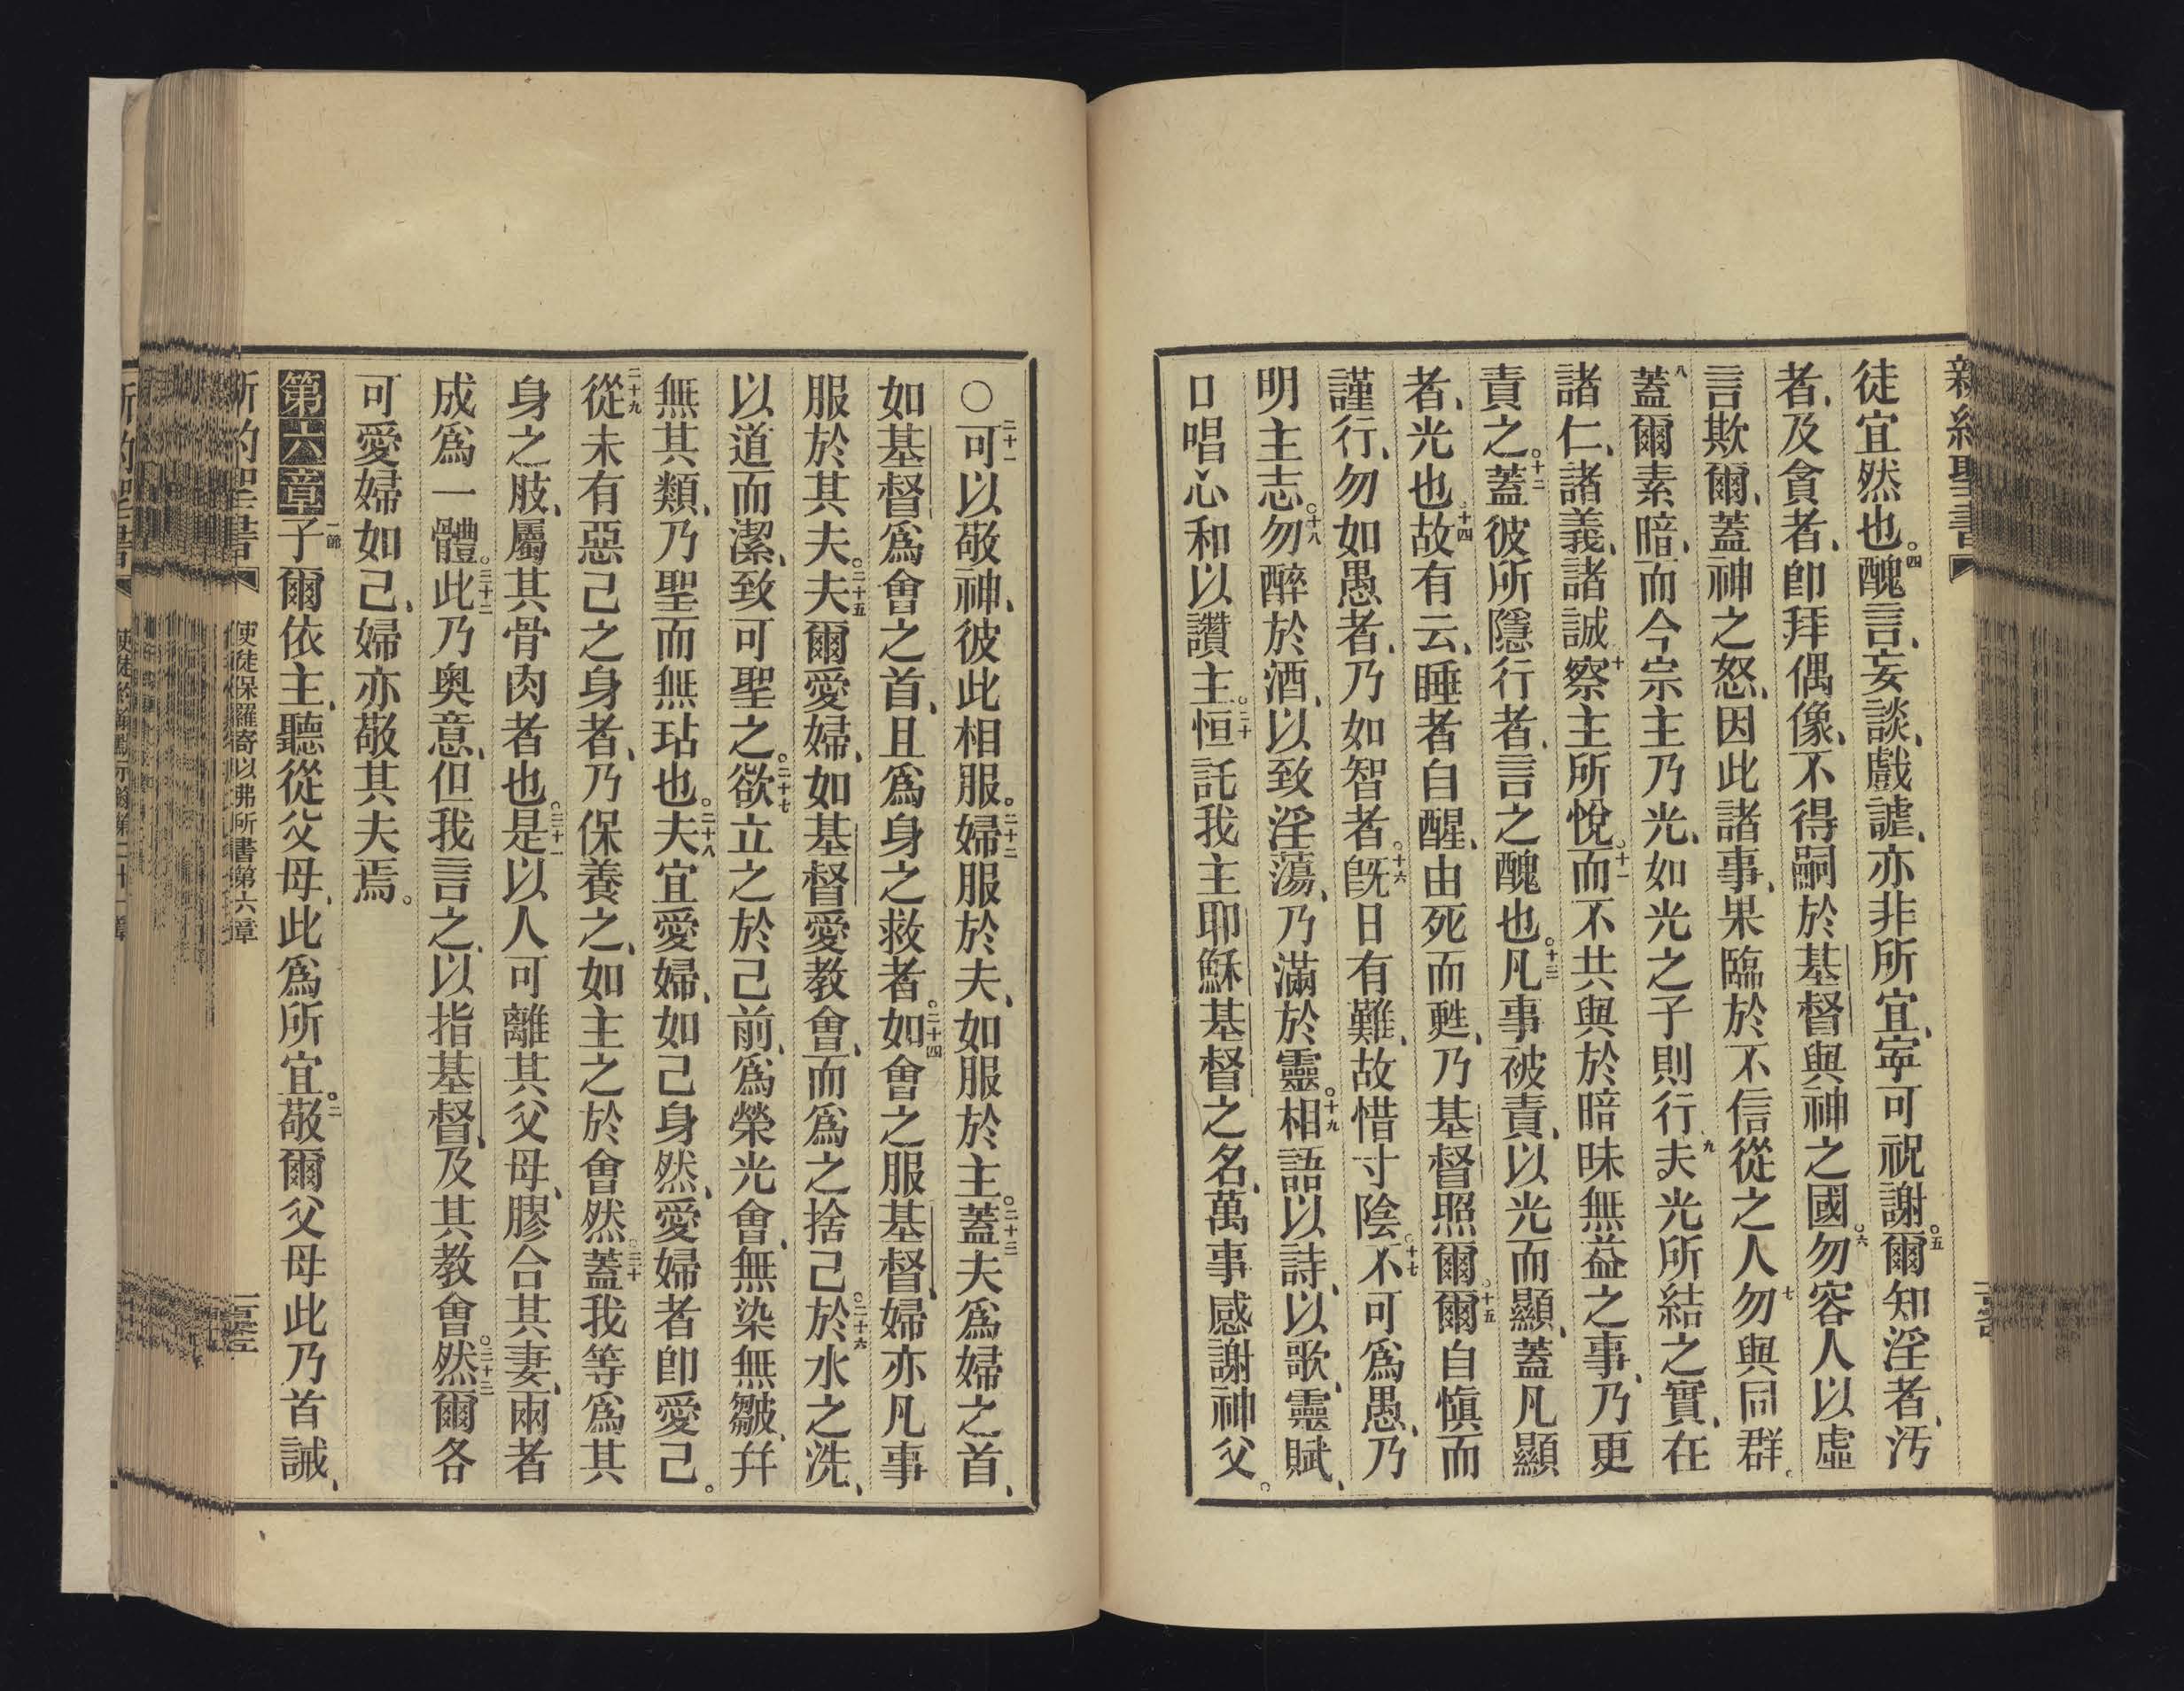 新約聖書
徒宜然也。四醜言、妄談、戲謔、亦非所宜、寧可祝謝。五爾知淫者、汚
者、及貪者、卽拜偶像、不得嗣於基督與神之國。六勿容人以虛
言欺爾、蓋神之怒、因此諸事、果臨於不信從之人七勿與同群。
八蓋爾素暗、而今宗主乃光、如光之子則行九夫光所結之實、在
諸仁、諸義、諸誠十察主所悅。十一而不共與於暗昧無益之事、乃更
責之。十二蓋彼所隱行者、言之醜也。十三凡事被責、以光而顯、蓋凡顯
者、光也十四故有云、睡者自醒、由死而甦、乃基督照爾。十五爾自愼而
謹行、勿如愚者、乃如智者。十六旣日有難、故惜寸陰。十七不可爲愚、乃
明主志。十八勿醉於酒、以致淫蕩、乃滿於靈。十九相語以詩、以歌、靈賦、
口唱心和以讚主。二十恒託我主耶穌基督之名、萬事感謝神父。
〇二十一可以敬神、彼此相服。二十二婦服於夫、如服於主。二十三蓋夫爲婦之首、
如基督爲會之首、且爲身之救者。二十四如會之服基督、婦亦凡事
服於其夫。二十五夫爾愛婦、如基督愛教會、而爲之捨己。二十六於水之洗、
以道而潔、致可聖之。二十七欲立之於己前、爲榮光會、無染無皺、幷
無其類、乃聖而無玷也。二十八夫宜愛婦、如己身然、愛婦者卽愛己。
二十九從未有惡己之身者、乃保養之、如主之於會然。三十蓋我等爲其
身之肢、屬其骨肉者也。三十一是以人可離其父母、膠合其妻、兩者
成爲一體。三十二此乃奧意、但我言之、以指基督、及其教會。三十三然爾各
可愛婦如己、婦亦敬其夫焉。
第六章一節子爾依主、聽從父母、此爲所宜。二敬爾父母此乃首誡、
新約聖書 使徒保羅寄以弗所書第六章